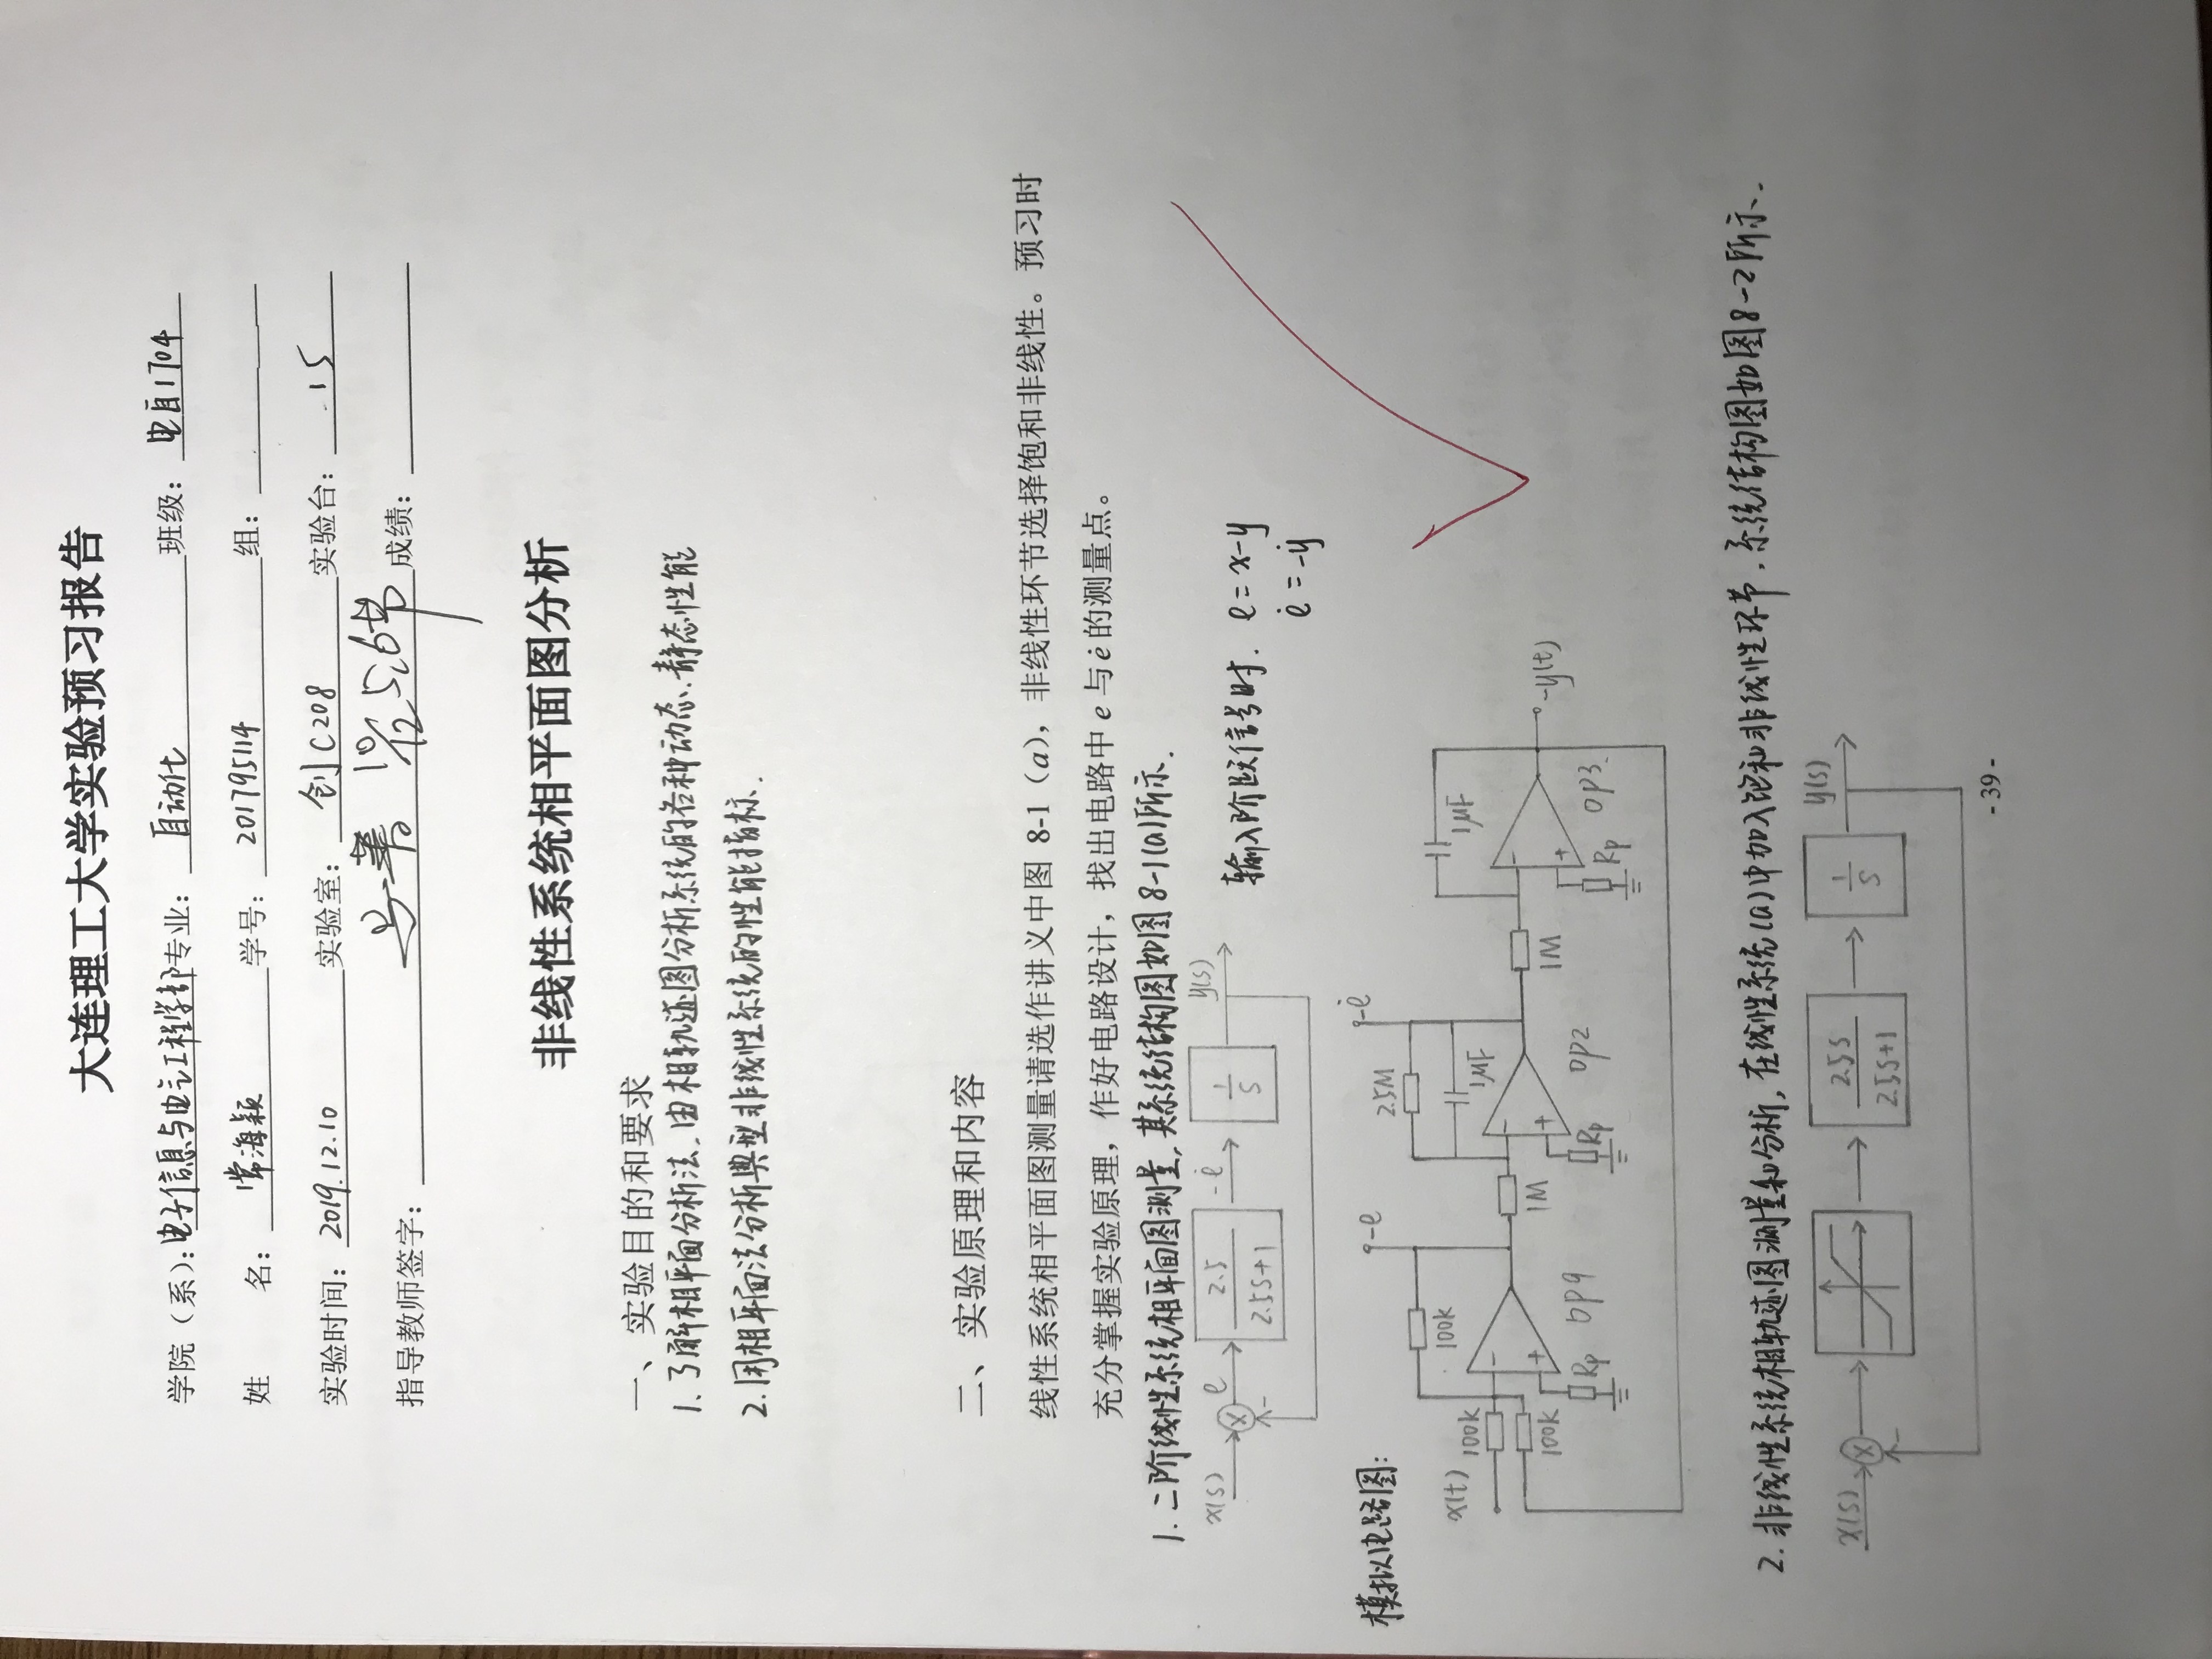 大连理工大学实验预习报告
学院（系）：电子信息与电气工程学部 专业： 自动化 班级： 电自1704
姓 名： 常海颖 学号： 201795114 组：
实验时间： 2019.12.10 实验室： 创C208 实验台： 15
指导教师签字： 10/12 5,6节 成绩：
非线性系统相平面图分析
一、实验目的和要求
1. 了解相平面分析法，由相轨迹图分析系统的各种动态、静态性能
2. 用相平面法分析典型非线性系统的性能指标.
二、实验原理和内容
线性系统相平面图测量请选作讲义中图 8-1（a），非线性环节选择饱和非线性。预习时
充分掌握实验原理，作好电路设计，找出电路中 e 与 ė 的测量点。
1. 二阶线性系统相平面图测量，其系统结构图如图8-1(a)所示.
x(s) e 2.5/2.5s+1 -ė 1/s y(s)
-
输入阶跃信号时. e = x-y
ė = -ẏ
模拟电路图:
-e -ė
2.5M
100k 1μF 1μF
x(t) 100k
100k 1M 1M -y(t)
- + Rp op9 - + Rp op2 - + Rp op3.
2. 非线性系统相轨迹图测量和分析，在线性系统(a)中加入饱和非线性环节，系统结构图如图8-2所示.
x(s) 2.5s/2.5s+1 1/s y(s)
-
- 39 -